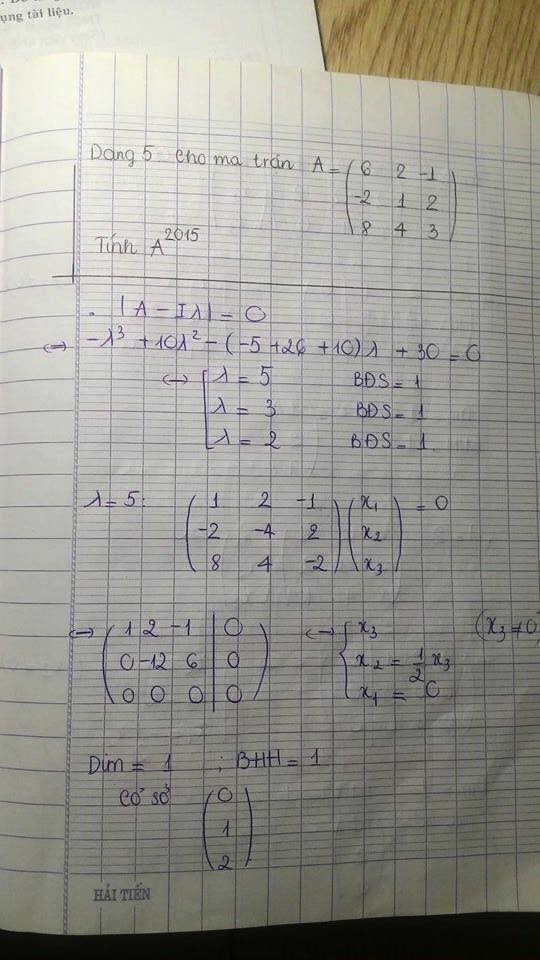 ụng tài liệu.
Dạng 5 Cho ma trận A = ( 6 2 -1
-2 1 2
8 4 3 )
Tính A^2015
. |A - Iλ| = 0
<=> -λ³ + 10λ² - (-5 + 26 + 10)λ + 30 = 0
<=> [ λ = 5 BĐS = 1
λ = 3 BĐS = 1
λ = 2 BĐS = 1
λ = 5: ( 1 2 -1
-2 -4 2
8 4 -2 ) ( x₁
x₂
x₃ ) = 0
<=> ( 1 2 -1 | 0
0 -12 6 | 0
0 0 0 | 0 )
<=> { x₃ (x₃ ≠ 0)
x₂ = 1/2 x₃
x₁ = 0
Dim = 1 ; BHH = 1
Cơ sở ( 0
1
2 )
HẢI TIẾN